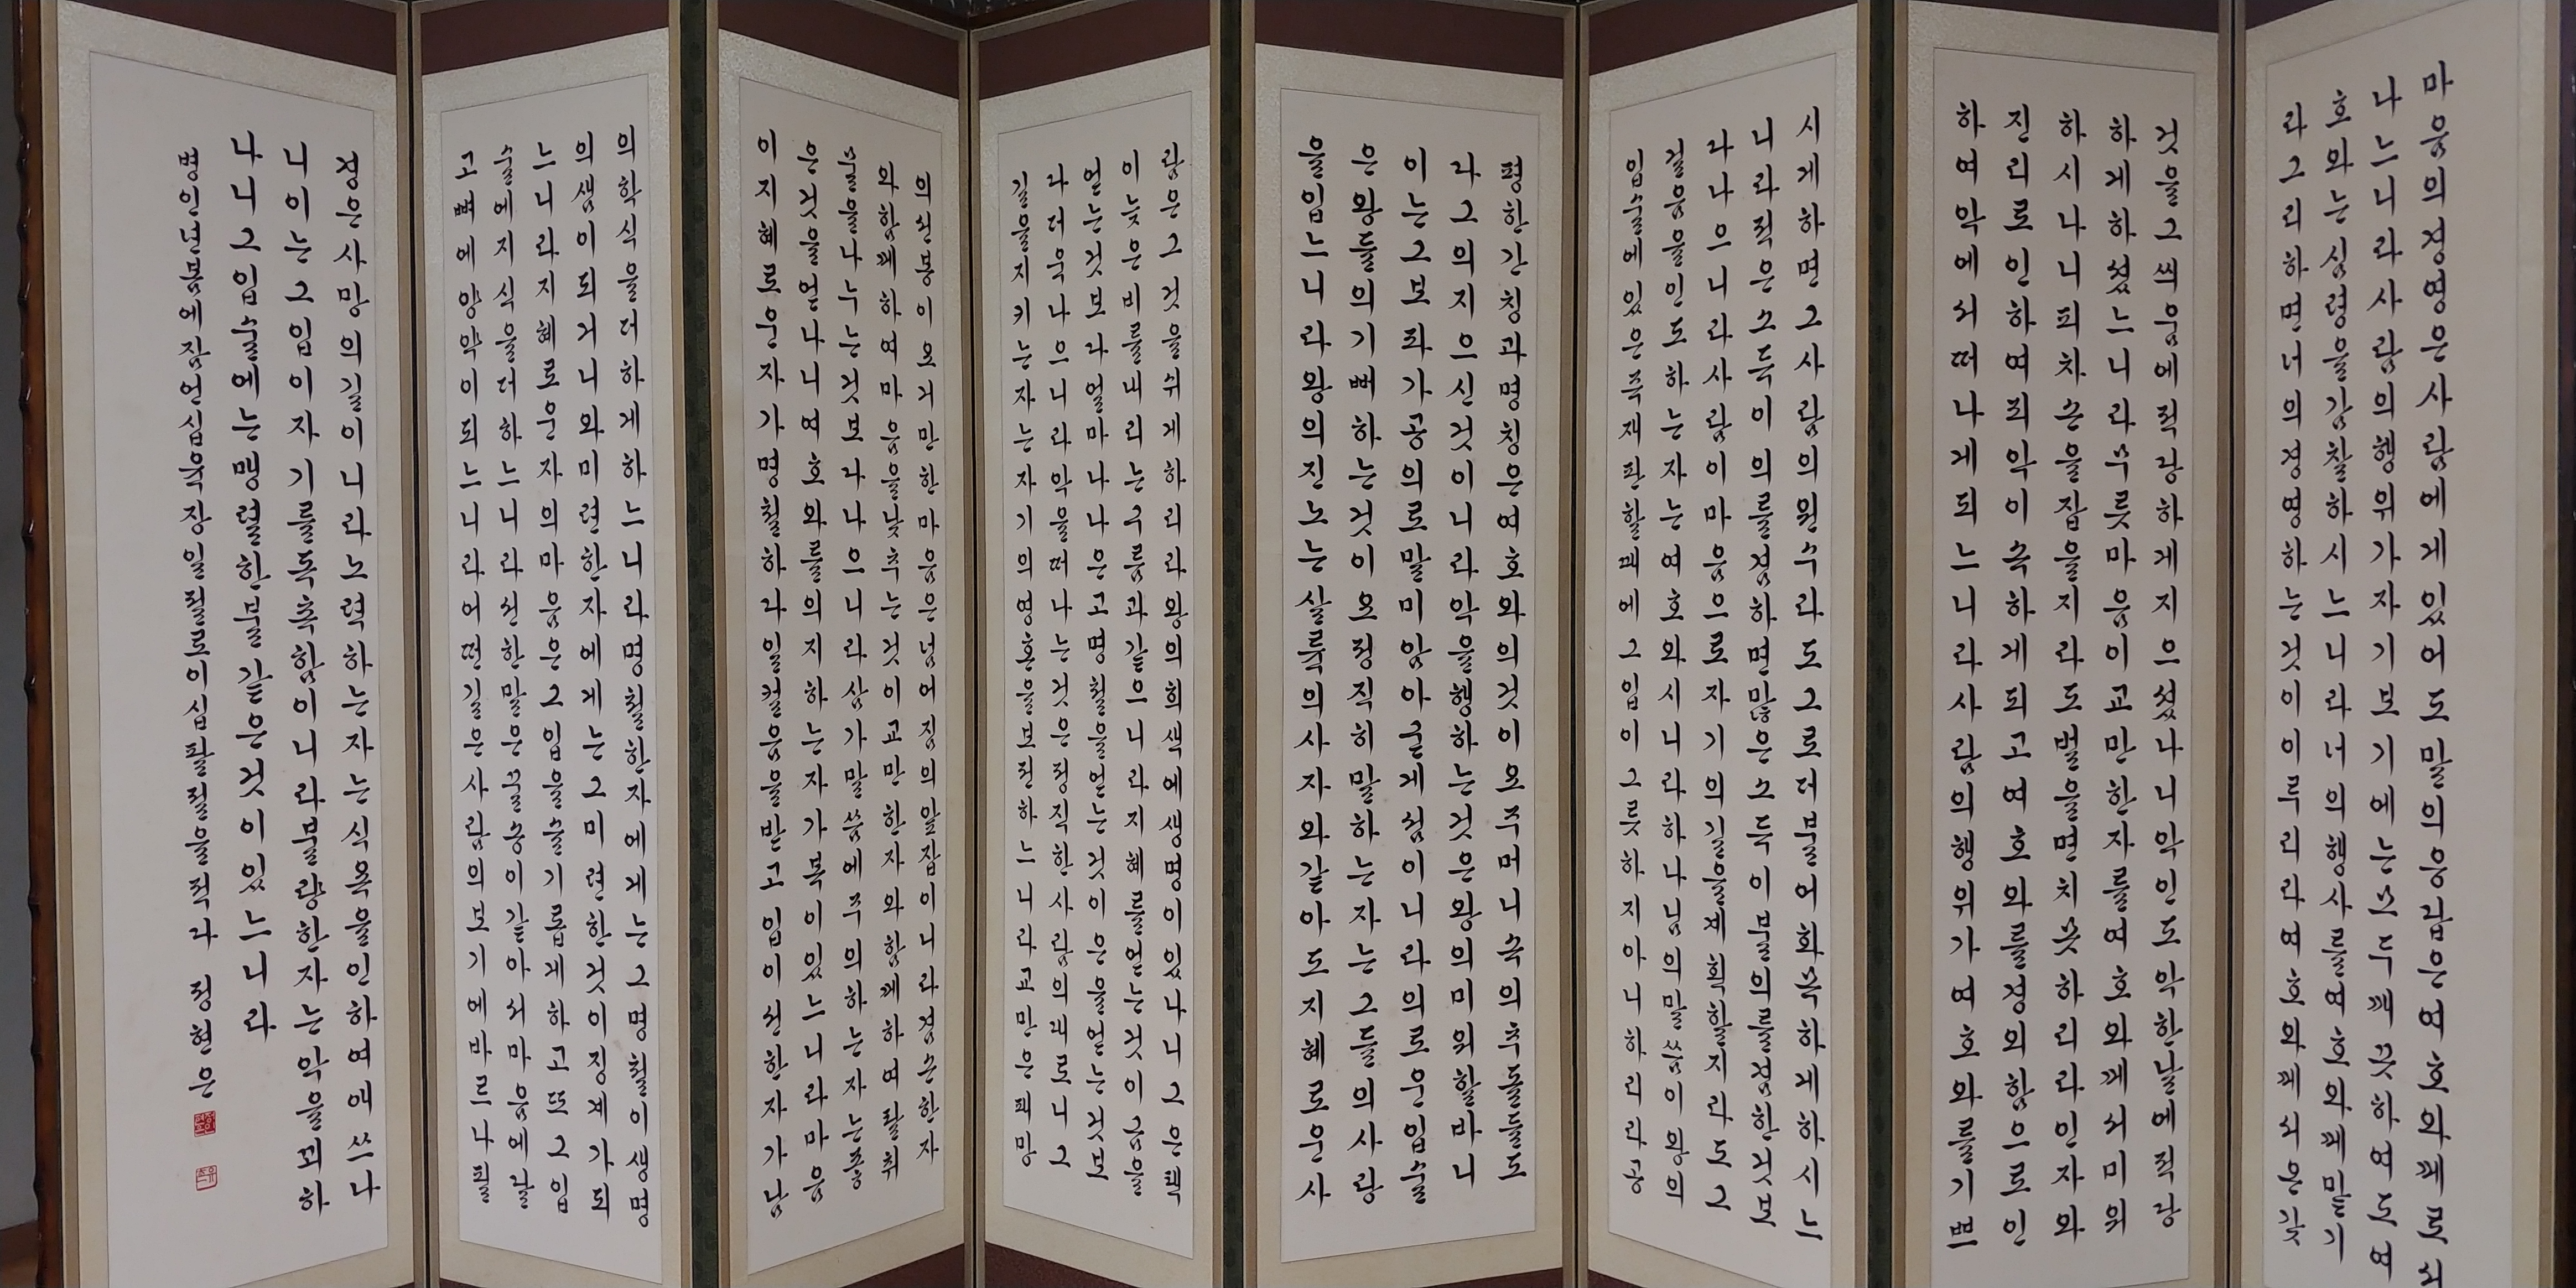 마음의경영은사람에게있어도말의응답은여호와께로서
나느니라사람의행위가자기보기에는모두깨끗하여도여
호와는심령을감찰하시느니라너의행사를여호와께맡기
라그리하면너의경영하는것이이루리라여호와께서온갖
것을그씌움에적당하게지으셨나니악인도악한날에적당
하게하셨느니라무릇마음이교만한자를여호와께서미워
하시나니피차손을잡을지라도벌을면치못하리라인자와
진리로인하여죄악이속하게되고여호와를경의함으로인
하여악에서떠나게되느니라사람의행위가여호와를기쁘
시게하면그사람의원수라도그로더불어화목하게하시느
니라적은소득이의를겸하면많은소득이불의를겸한것보
다나으니라사람이마음으로자기의길을계획할지라도그
걸음을인도하는자는여호와시니라하나님의말씀이왕의
입술에있은즉재판할때에그입이그릇하지아니하리라공
평한간칭과명칭은여호와의것이요주머니속의추돌들도
다그의지으신것이니라악을행하는것은왕의미워할바니
이는그보좌가공의로말미암아굳게섬이니라의로운입술
은왕들의기뻐하는것이요정직히말하는자는그들의사랑
을입느니라왕의진노는살륙의사자와같아도지혜로운사
람은그것을쉬게하리라왕의희색에생명이있나니그은택
이늦은비를내리는구름과같으니라지혜를얻는것이금을
얻는것보다얼마나나은고명철을얻는것이은을얻는것보
다더욱나으니라악을떠나는것은정직한사람의대로니그
길을지키는자는자기의영혼을보전하느니라교만은패망
의선봉이요거만한마음은넘어짐의앞잡이니라겸손한자
와함께하여마음을낮추는것이교만한자와함께하여탈취
물을나누는것보다나으니라삼가말씀에주의하는자는좋
은것을얻나니여호와를의지하는자가복이있느니라마음
이지혜로운자가명철하다일컬음을받고입이선한자가남
의학식을더하게하느니라명철한자에게는그명철이생명
의샘이되거니와미련한자에게는그미련한것이징계가되
느니라지혜로운자의마음은그입을슬기롭게하고또그입
술에지식을더하느니라선한말은꿀송이같아서마음에달
고뼈에양약이되느니라어떤길은사람의보기에바르나필
경은사망의길이니라노력하는자는식욕을인하여애쓰나
니이는그입이자기를독촉함이니라불량한자는악을꾀하
나니그입술에는맹렬한불같은것이있느니라
병인년봄에잠언십육장일절로이십팔절을적다 정현은